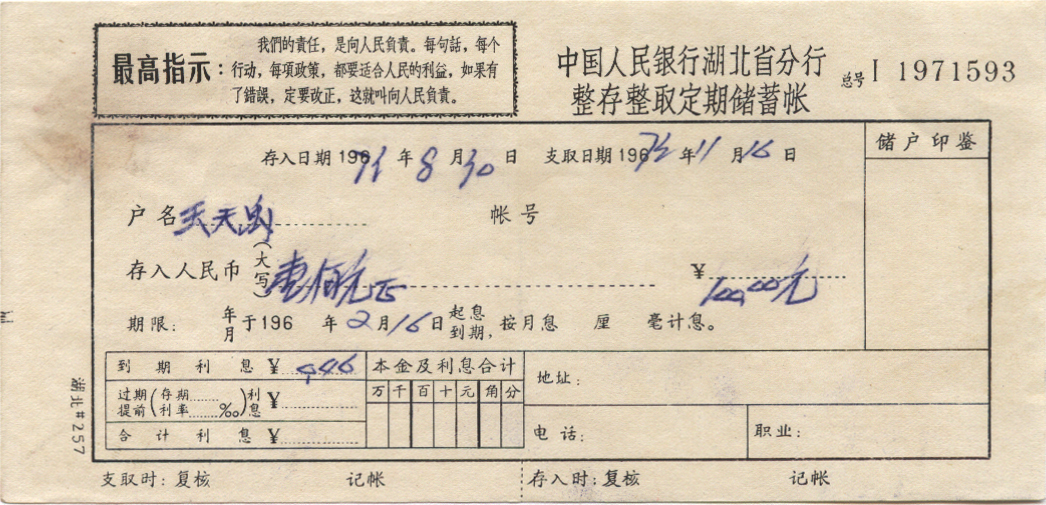 最高指示:
我們的責任，是向人民負責。每句話，每个
行动，每項政策，都要适合人民的利益，如果有
了錯誤，定要改正，这就叫向人民負責。
中国人民银行湖北省分行
整存整取定期储蓄帐
总号 I 1971593
存入日期196 年 8 月 30 日 支取日期196 年 11 月 16 日
储户印鉴
户名 天天 帐号
存入人民币(大写) 壹佰元正 ¥ 100.00元
期限: 年月于196 年 2 月 16 日起息到期，按月息 厘 毫计息。
到期利息¥
本金及利息合计
万千百十元角分
过期提前(存期利率 ‰)利息¥
合计利息¥
地址:
电话:
职业:
湖北#257
支取时:复核 记帐 存入时:复核 记帐